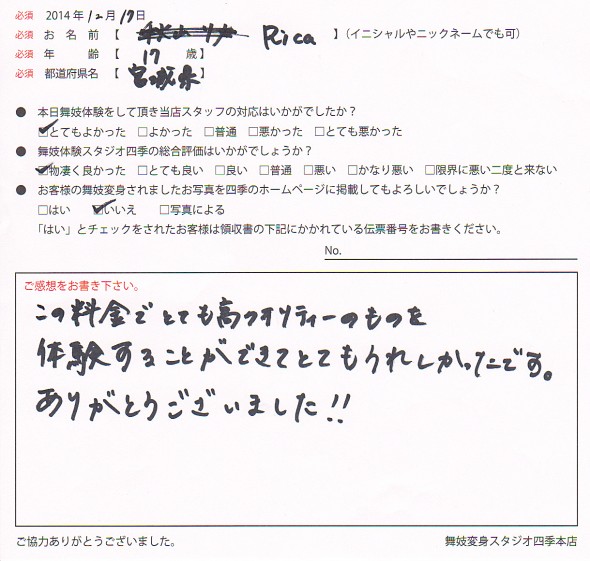 必須 2014年12月17日
必須 お名前【 Rica 】(イニシャルやニックネームでも可)
必須 年齢【 17 歳】
必須 都道府県名【 宮城県 】
● 本日舞妓体験をして頂き当店スタッフの対応はいかがでしたか？
☑とてもよかった □よかった □普通 □悪かった □とても悪かった
● 舞妓体験スタジオ四季の総合評価はいかがでしょうか？
☑物凄く良かった □とても良い □良い □普通 □悪い □かなり悪い □限界に悪い二度と来ない
● お客様の舞妓変身されましたお写真を四季のホームページに掲載してもよろしいでしょうか？
□はい ☑いいえ □写真による
「はい」とチェックをされたお客様は領収書の下記にかかれている伝票番号をお書きください。
No.
ご感想をお書き下さい。
この料金でとても高クオリティーのものを
体験することができてとてもうれしかったです。
ありがとうございました!!
ご協力ありがとうございました。
舞妓変身スタジオ四季本店